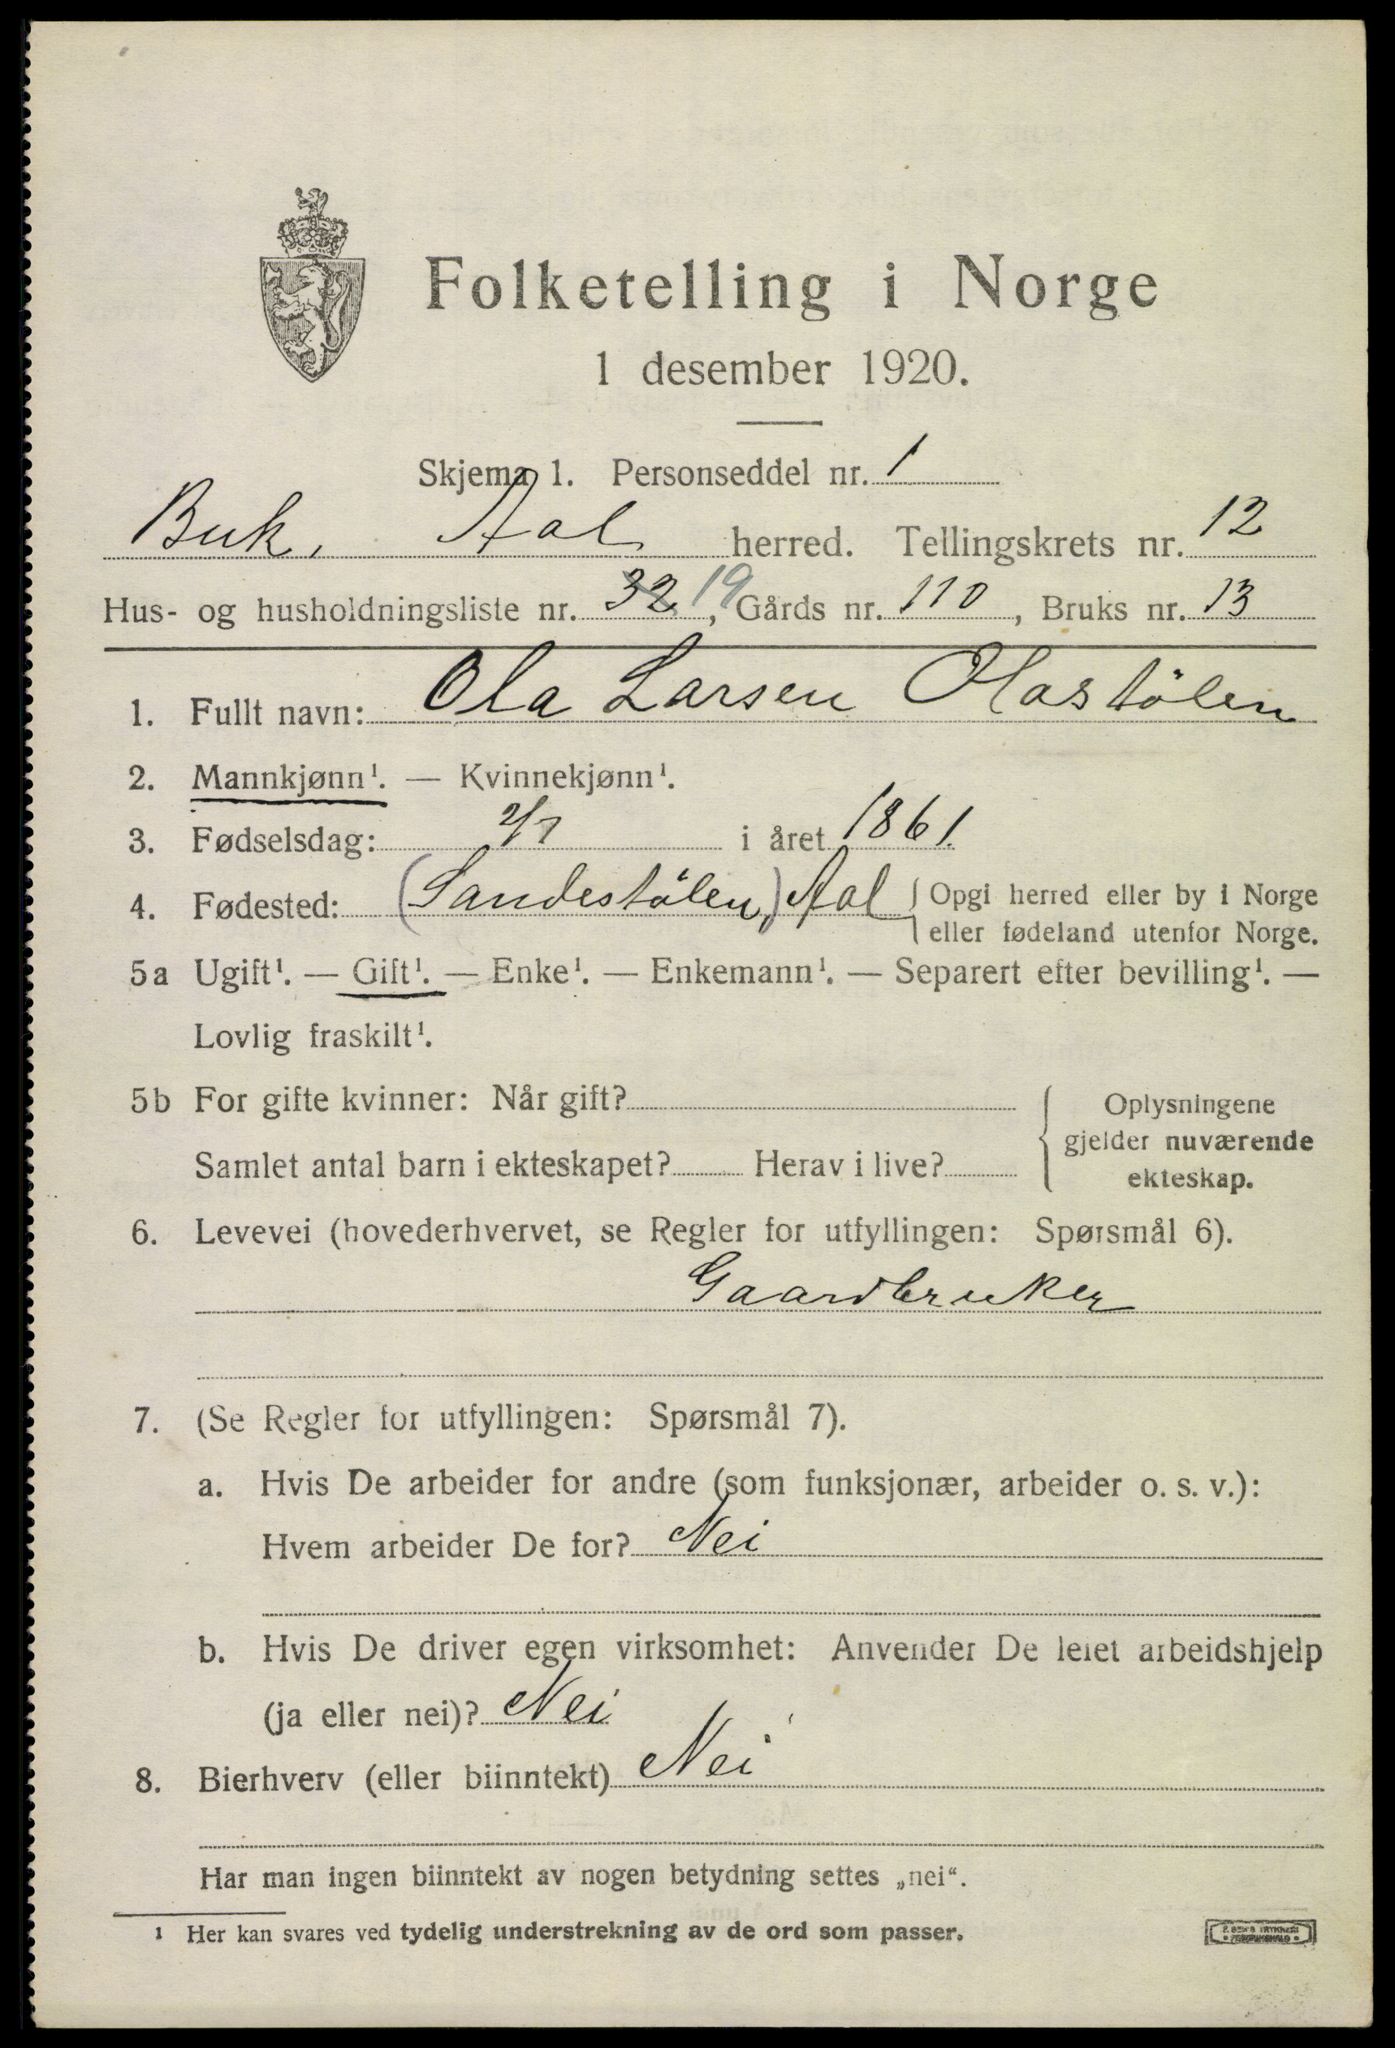 Folketelling i Norge
1 desember 1920.
Skjema 1. Personseddel nr. 1
Busk. Aal herred. Tellingskrets nr. 12
Hus- og husholdningsliste nr. 32 19, Gårds nr. 110, Bruks nr. 13
1. Fullt navn: Ola Larsen Olastølen
2. Mannkjønn¹. — Kvinnekjønn¹.
3. Fødselsdag: 2/7 i året 1861.
4. Fødested: (Sandestølen,) Aal { Opgi herred eller by i Norge
eller fødeland utenfor Norge.
5a Ugift¹. — Gift¹. — Enke¹. — Enkemann¹. — Separert efter bevilling¹. —
Lovlig fraskilt¹.
5b For gifte kvinner: Når gift?
Samlet antal barn i ekteskapet? Herav i live?
Oplysningene
gjelder nuværende
ekteskap.
6. Levevei (hovederhvervet, se Regler for utfyllingen: Spørsmål 6).
Gaardbruker
7. (Se Regler for utfyllingen: Spørsmål 7).
a. Hvis De arbeider for andre (som funksjonær, arbeider o. s. v.):
Hvem arbeider De for? Nei
b. Hvis De driver egen virksomhet: Anvender De leiet arbeidshjelp
(ja eller nei)? Nei
8. Bierhverv (eller biinntekt) Nei
Har man ingen biinntekt av nogen betydning settes „nei“.
¹ Her kan svares ved tydelig understrekning av de ord som passer.